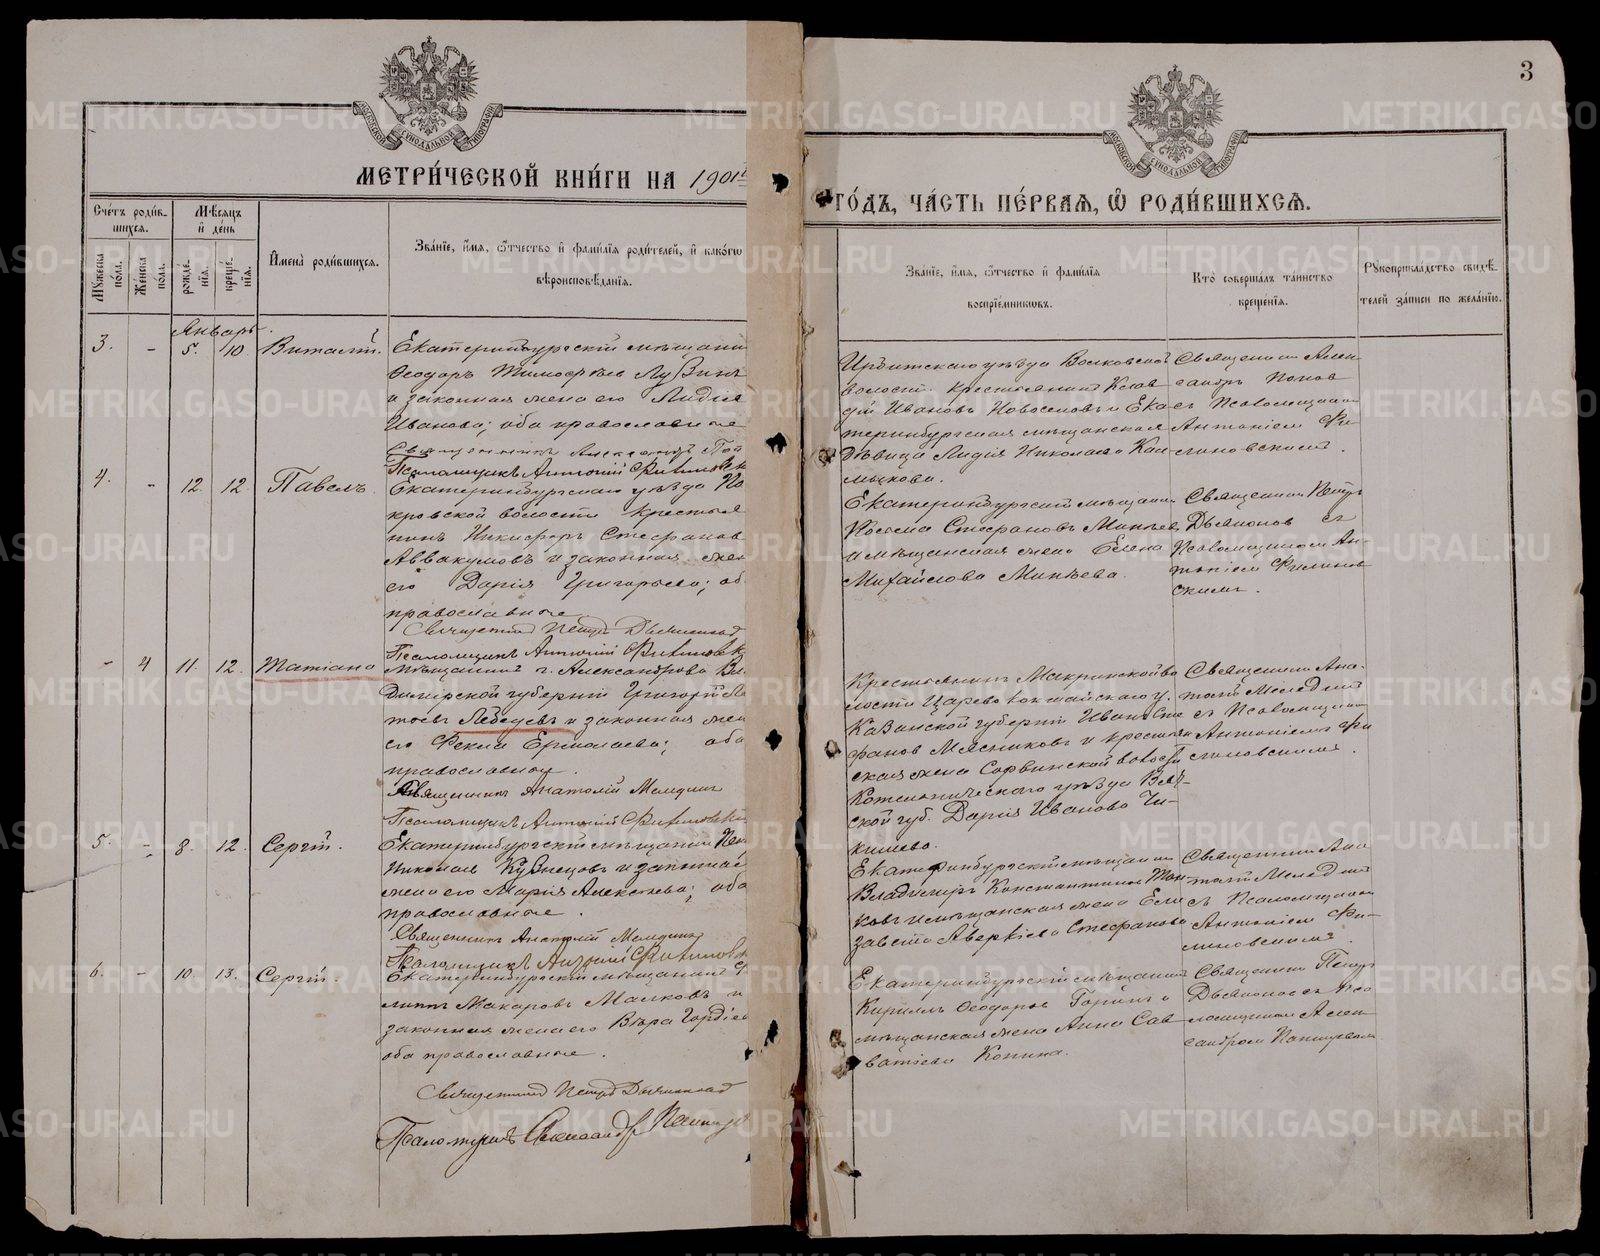 3
МОСКОВСКОЙ СѴНОДАЛЬНОЙ ТИПОГРАФІИ
МОСКОВСКОЙ СѴНОДАЛЬНОЙ ТИПОГРАФІИ
МЕТРИ́ЧЕСКОЙ КНИ́ГИ НА 1901
ГО́ДЪ, ЧА́СТЬ ПЕ́РВАѦ, Ѽ РОДИ́ВШИХСѦ.
Сче́тъ роди́в-
шихся.
Мѣ́сяцъ
и де́нь
Мꙋ́жеска
по́ла.
Же́нска
по́ла.
рожде́-
нїя.
креще́-
нїя.
Имена̀ роди́вшихся.
Зва́нїе, и́мя, ѻ҆́тчество и фами́лїя роди́телей, и како́гѡ
вѣроисповѣ́данїя.
Зва́нїе, и́мя, ѻ҆́тчество и фами́лїя
воспрїе́мникѡвъ.
Кто̀ соверша́лъ та́инство
креще́нїя.
Рꙋкоприкла́дство свидѣ́-
телей за́писи по жела́нїю.
Январь.
3. - 5. 10. Виталій.
Екатеринбургскій мѣщани
Ѳеодоръ Тимоѳѣев Лузинъ
и законная жена его Лидія
Иванова; оба православные
Священникъ Александръ Поп
Псаломщикъ Антоній Филиновск
Ирбитскаго уѣзда Волковской
волости крестьянинъ Клав
дій Ивановъ Новоселовъ и Ека
теринбургская мѣщанская
дѣвица Лидія Николаева Кал
мыкова.
Священник Алек
сандръ Попов
съ Псаломщиком
Антоніем Фи
линовскимъ.
4. - 12. 12. Павелъ
Екатеринбургскаго уѣзда По
кровской волости крестья
нинъ Никифоръ Стефанов
Аввакумовъ и законная жен
его Дарія Григорьева; об
православные.
Священник Петръ Дьяконов
Псаломщикъ Антоній Филиновск
Екатеринбургскій мѣщанин
Стефановъ Минѣев
и мѣщанская жена Елена
Михайлова Минѣева.
Священник Петръ
Дьяконов съ
Псаломщиком Ан-
тоніем Филинов
скимъ.
- 4 11. 12. Татіана
мѣщанинъ г. Александрова Вла
димірской губерніи Григорій
Лебедевъ и законная жен
его Фекла Ермолаева; оба
православные.
Священникъ Анатолій
Псаломщикъ Антоній Филиновскій
Крестьянинъ Макринской во
лости Царевококшайскаго у.
Казанской губерніи Иванъ Сте
фанов Мясниковъ и крестьян
ская жена Сорвинской волости
Котельническаго уѣзда Вят-
ской губ. Дарія Иванова Чи-
кишева.
Священник Ана-
толій
съ Псаломщиком
Антоніемъ Фи
линовскимъ.
5. - 8. 12. Сергій.
Екатеринбургскій мѣщанинъ
Николаев Кузнецовъ и законная
жена его Марія Алексѣева; оба
православные.
Священникъ Анатолій
Псаломщикъ Антоній Филиновск
Екатеринбургскій мѣщанин
Владимиръ Константинов
ковъ и мѣщанская жена Ели
завета Аверкіева Стефанова
Священник Ана
толій
съ Псаломщиком
Антоніем Фи-
линовскимъ.
6. - 10. 13. Сергій.
Екатеринбургскій мѣщанинъ Ф
липъ Макаровъ Малковъ и
законная жена его Вѣра Гордіев
оба православные.
Священник Петръ Дьяконов
Псаломщикъ Александръ
Екатеринбургскій мѣщанин
Кириллъ Ѳеодоров и
мѣщанская жена Анна Сав
ватіева Копина.
Священник Петръ
Дьяконов съ Пса
ломщиком Алек
сандром
METRIKI.GASO-URAL.RU